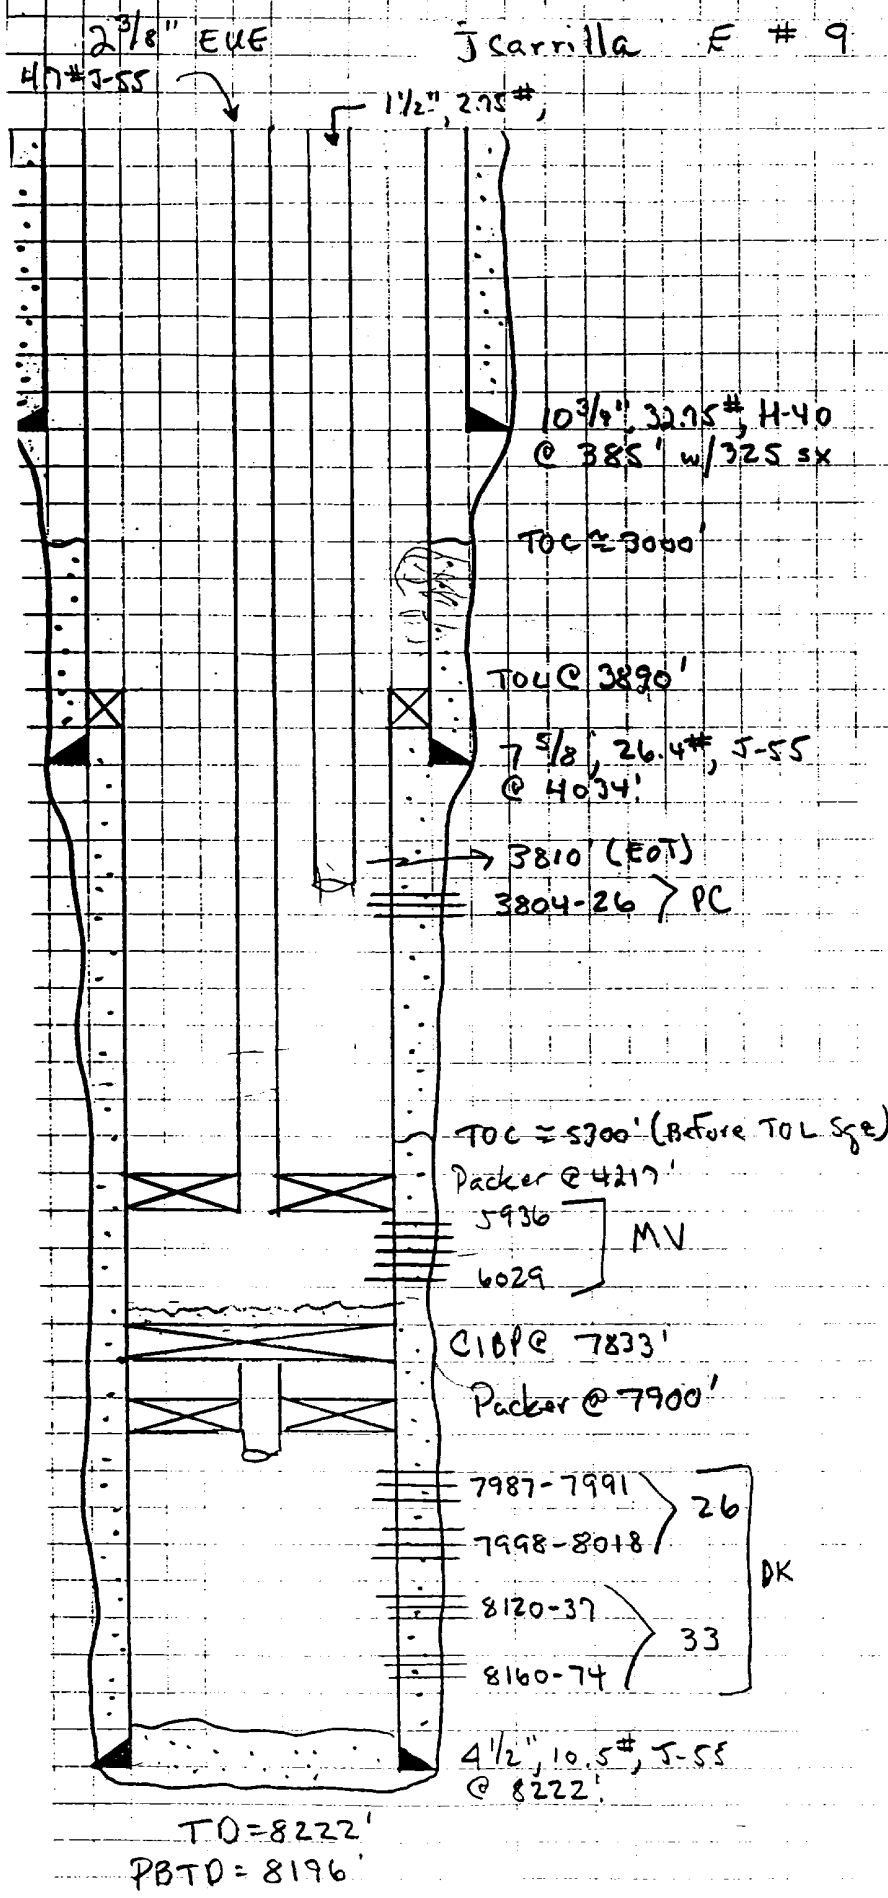 2 3/8" EUE
4.7# J-55
Jicarrilla E # 9
1 1/2", 2.75#,
10 3/4", 32.75#, H-40
@ 385' w/325 sx
TOC ≈ 3000'
TOL @ 3890'
7 5/8, 26.4#, J-55
@ 4034'
3810' (EOT)
3804-26 PC
TOC ≈ 5300' (Before TOL Sqz)
Packer @ 4217'
5936
MV
6029
CIBP @ 7833'
Packer @ 7900'
7987-7991
26
7998-8018
DK
8120-37
33
8160-74
4 1/2", 10.5#, J-55
@ 8222'
TD=8222'
PBTD= 8196'